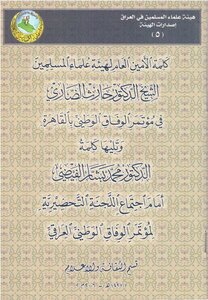 هيئة علماء المسلمين في العراق
إصدارات الهيئة
(٥)
كلمة الأمين العام لهيئة علماء المسلمين
الشيخ الدكتور حارث الضاري
في مؤتمر الوفاق الوطني بالقاهرة
وتليها كلمة
الدكتور محمد بشار الفيضي
أمام اجتماع اللجنة التحضيرية
لمؤتمر الوفاق الوطني العراقي
قسم الثقافة والإعلام